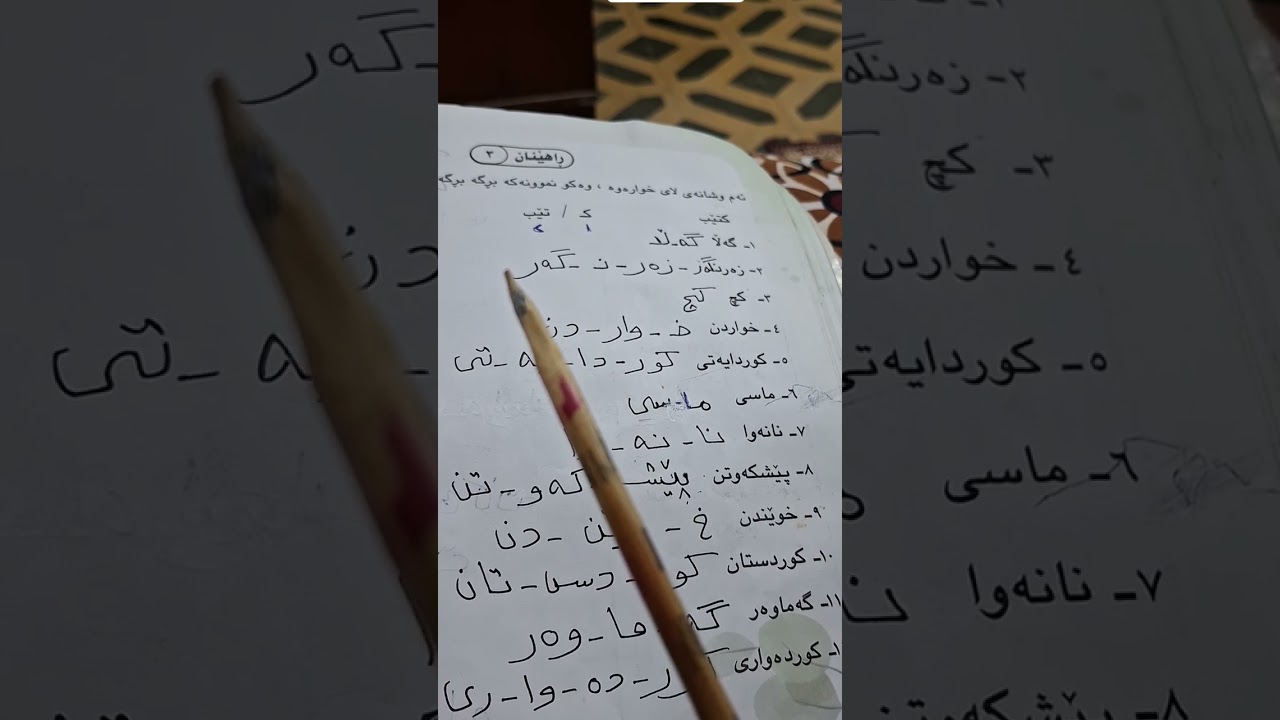 ڕاهێنان ٣
ئەم وشانەی لای خوارەوە ، وەکو نموونەکە بڕگە بڕگە
کتێب ک / تێب
١ ٢
١- گەڵا گە-ڵا
٢- زەرنگەر - زەر - ن - گەر
٣- کچ کچ
٤- خواردن خ - وار - دن
٥- کوردایەتی کور - دا - یە - تی
٦- ماسی ما - سی
٧- نانەوا نا - نە -
٨- پێشکەوتن پێش کەو - تن
٩- خوێندن خ - ێن - دن
١٠- کوردستان کو - دس - تان
١١- گەماوەر گە ما - وەر
١ کوردەواری کور - دە - وا - ری